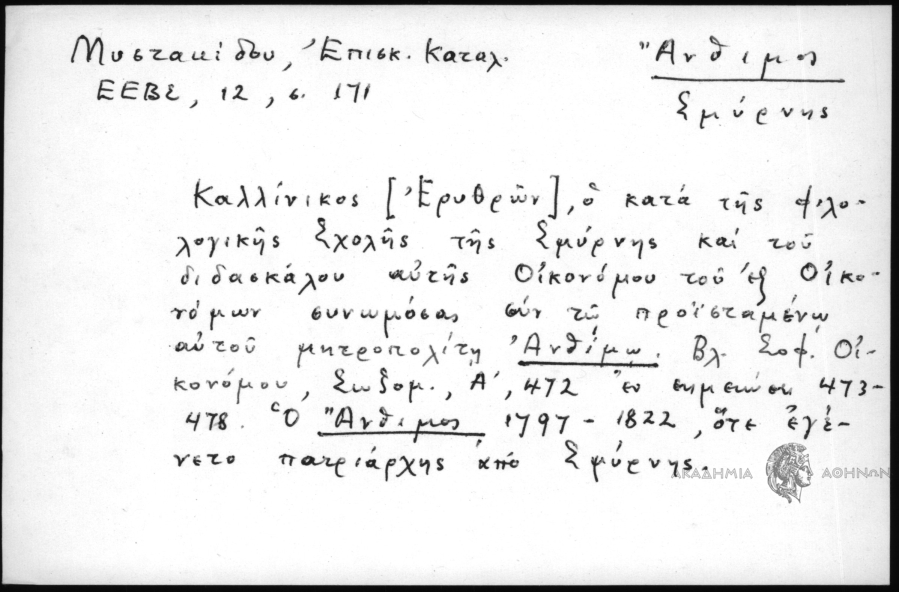 Μυστακίδου, Ἐπισκ. Καταλ.
ΕΕΒΣ, 12, σ. 171
Ἄνθιμος
Σμύρνης
Καλλίνικος [Ἐρυθρῶν], ὁ κατά τῆς φιλο-
λογικῆς Σχολῆς τῆς Σμύρνης καί τοῦ
διδασκάλου αὐτῆς Οἰκονόμου τοῦ ἐξ Οἰκο-
νόμων συνωμόσας σύν τῷ προϊσταμένῳ
αὐτοῦ μητροπολίτῃ Ἀνθίμῳ. Βλ. Σοφ. Οἰ-
κονόμου, Σωζομ., Α΄, 472 ἐν σημειώσει 473-
478. Ὁ Ἄνθιμος 1797 - 1822, ὅτε ἐγέ-
νετο πατριάρχης ἀπό Σμύρνης.
ΑΚΑΔΗΜΙΑ ΑΘΗΝΩΝ